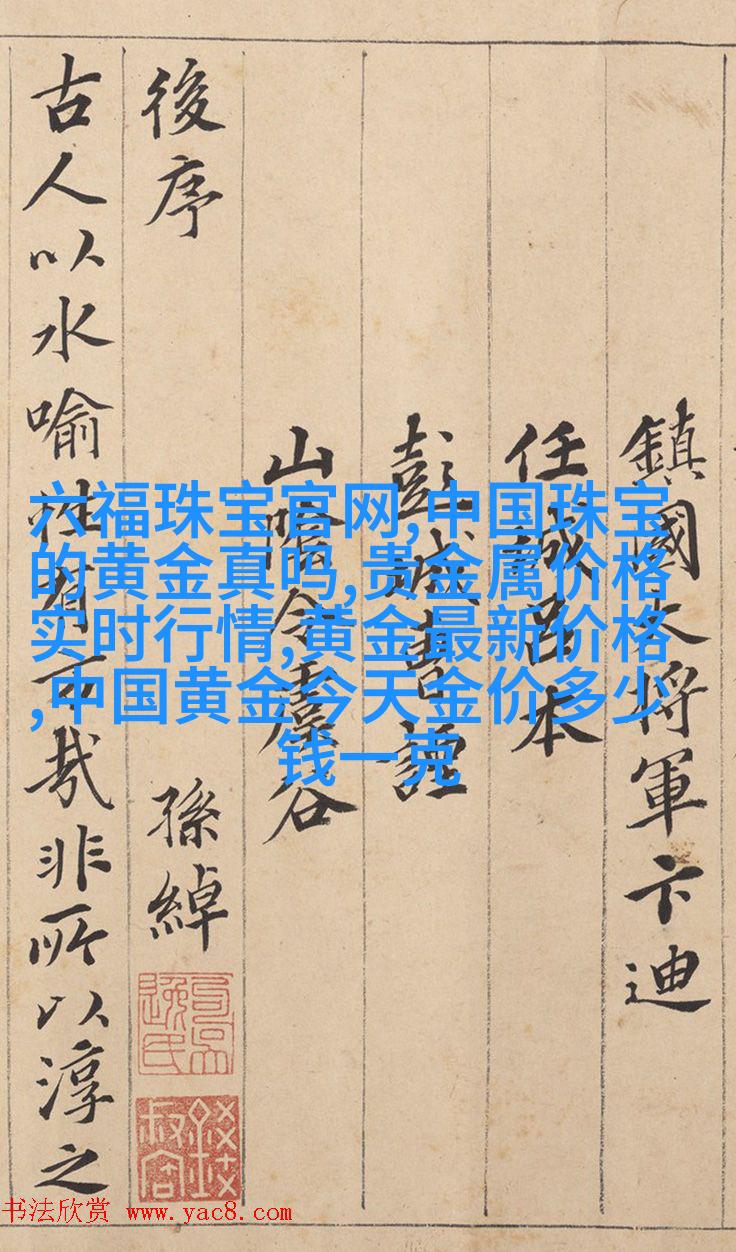 六福珠宝官网,中国珠宝
的黄金真吗,贵金属价格
实时行情,黄金最新价格
,中国黄金今天金价多少
钱一克
鎮國大將軍卞迪
任城呂本
彭城曹諲
山陰令虞谷
後序 孫綽
古人以水喻性有旨哉非所以淳之
书法欣赏 www.yac8.com